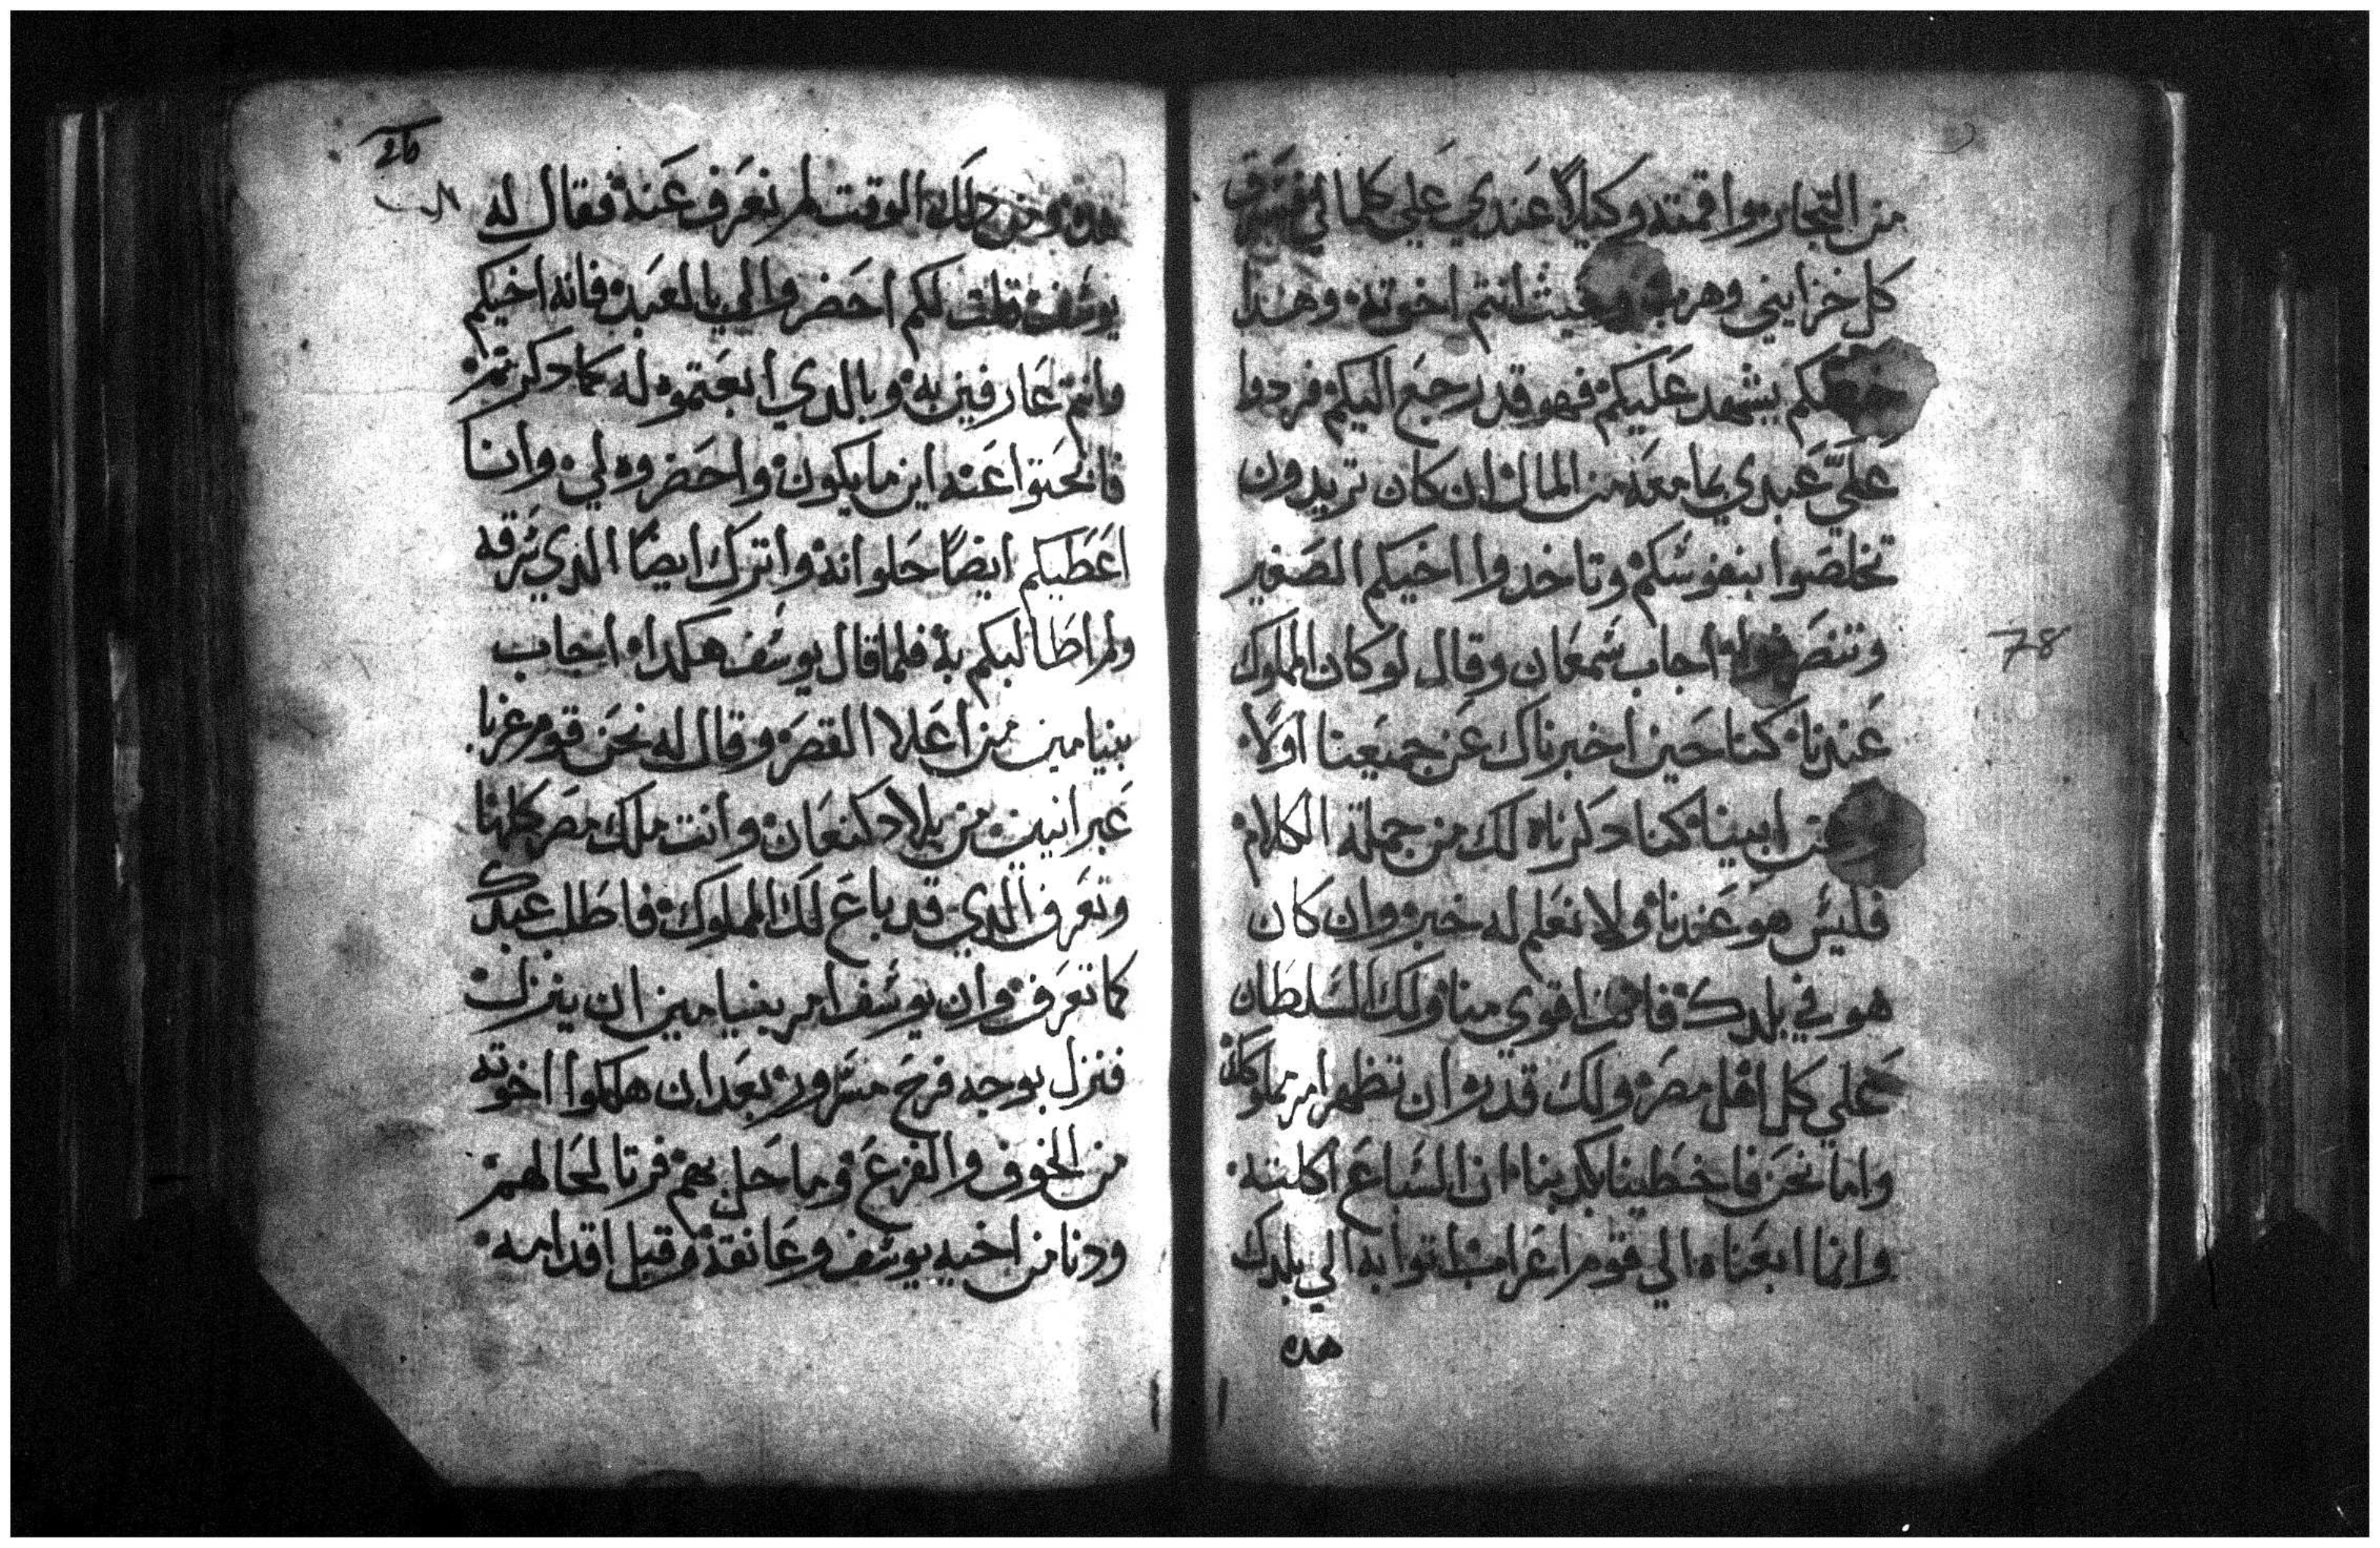 من التجار واقمته وكيلاً عندي علي كلما لي فسرق
كل خزايني وهرب وحيث انتم اخوته وهذا
خطكم يشهد عليكم فهو قد رجع اليكم فردوا
علي عبدي بما معه من المال ان كان تريدون
تخلصوا بنفوسكم وتاخدوا اخيكم الصغير
وتنصرفوا اجاب شمعان وقال لو كان المملوك
عندنا كنا حين اخبرناك عن جميعنا اولا
ابينا كنا دكرناه لك من جملة الكلام
فليس هو عندنا ولا نعلم له خبر وان كان
هو في بلدك فانت اقوي منا ولك السلطان
علي كل اهل مصر ولك قدره ان تظهر امر مملوكك
واما نحن فاخطينا بكدبنا ان السباع اكلته
وانما ابعناه الي قوم اعراب اتوا به الي بلدك
هده
78
26
هده ومن دلك الوقت لم نعرف عنه فقال له
يوسف قلت لكم احضروا الي يا لعبد فانه اخيكم
وانتم عارفين به وبالدي ابعتموه له كما دكرتم
فابحتوا عنه اين ما يكون واحضروه لي وانا
اعطيكم ايضاً حلوانه واترك ايضاً الدي سرقه
ولم اطالبكم به فلما قال يوسف هكدا اجاب
بنيامين من اعلا القصر وقال له نحن قوم غربا
عبرانيين من بلاد كنعان وانت ملك مصر كلها
وتعرف الدي قد باع لك المملوك فاطلب عبدك
كما تعرف وان يوسف امر بنيامين ان ينزل
فنزل بوجه فرح مسرور بعد ان هلكوا اخوته
من الخوف والفزع وما حل بهم فرتا لحالهم
ودنا من اخيه يوسف وعانقه وقبل اقدامه